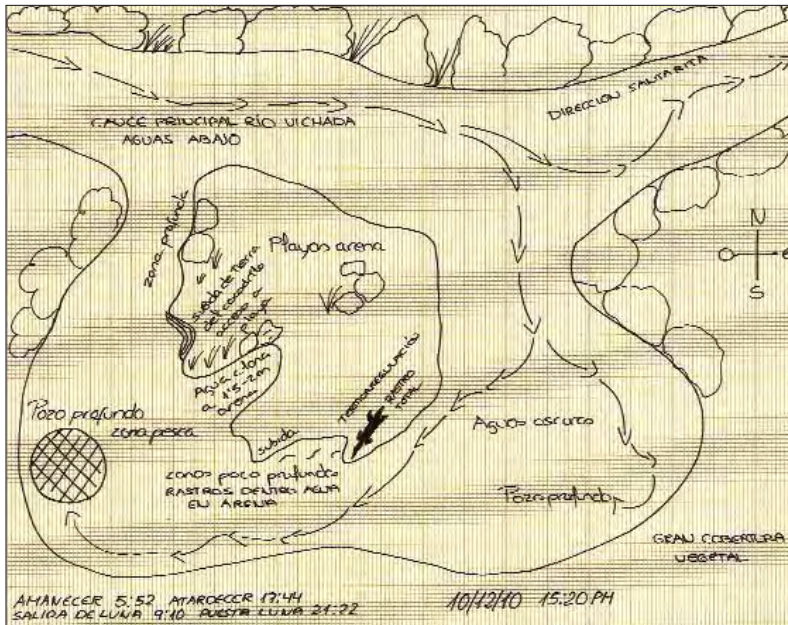 CAUCE PRINCIPAL RÍO VICHADA
AGUAS ABAJO
DIRECCION SANTARITA
zona profunda
Playas arena
subida de tierra
del cocodrilo
acceso a
playa
N
O
e
S
Agua clara
a 1'5-2m
arena
TERMORREGULACIÓN
RASTRO
TOTAL
Pozo profundo
zona pesca
subida
Aguas oscuras
zonas poco profundas
RASTROS DENTRO AGUA
EN ARENA
Pozo profundo
GRAN COBERTURA
VEGETAL
AMANECER 5:52 ATARDECER 17:44
SALIDA DE LUNA 9:10 PUESTA LUNA 21:22
10/12/10 15:20 PM